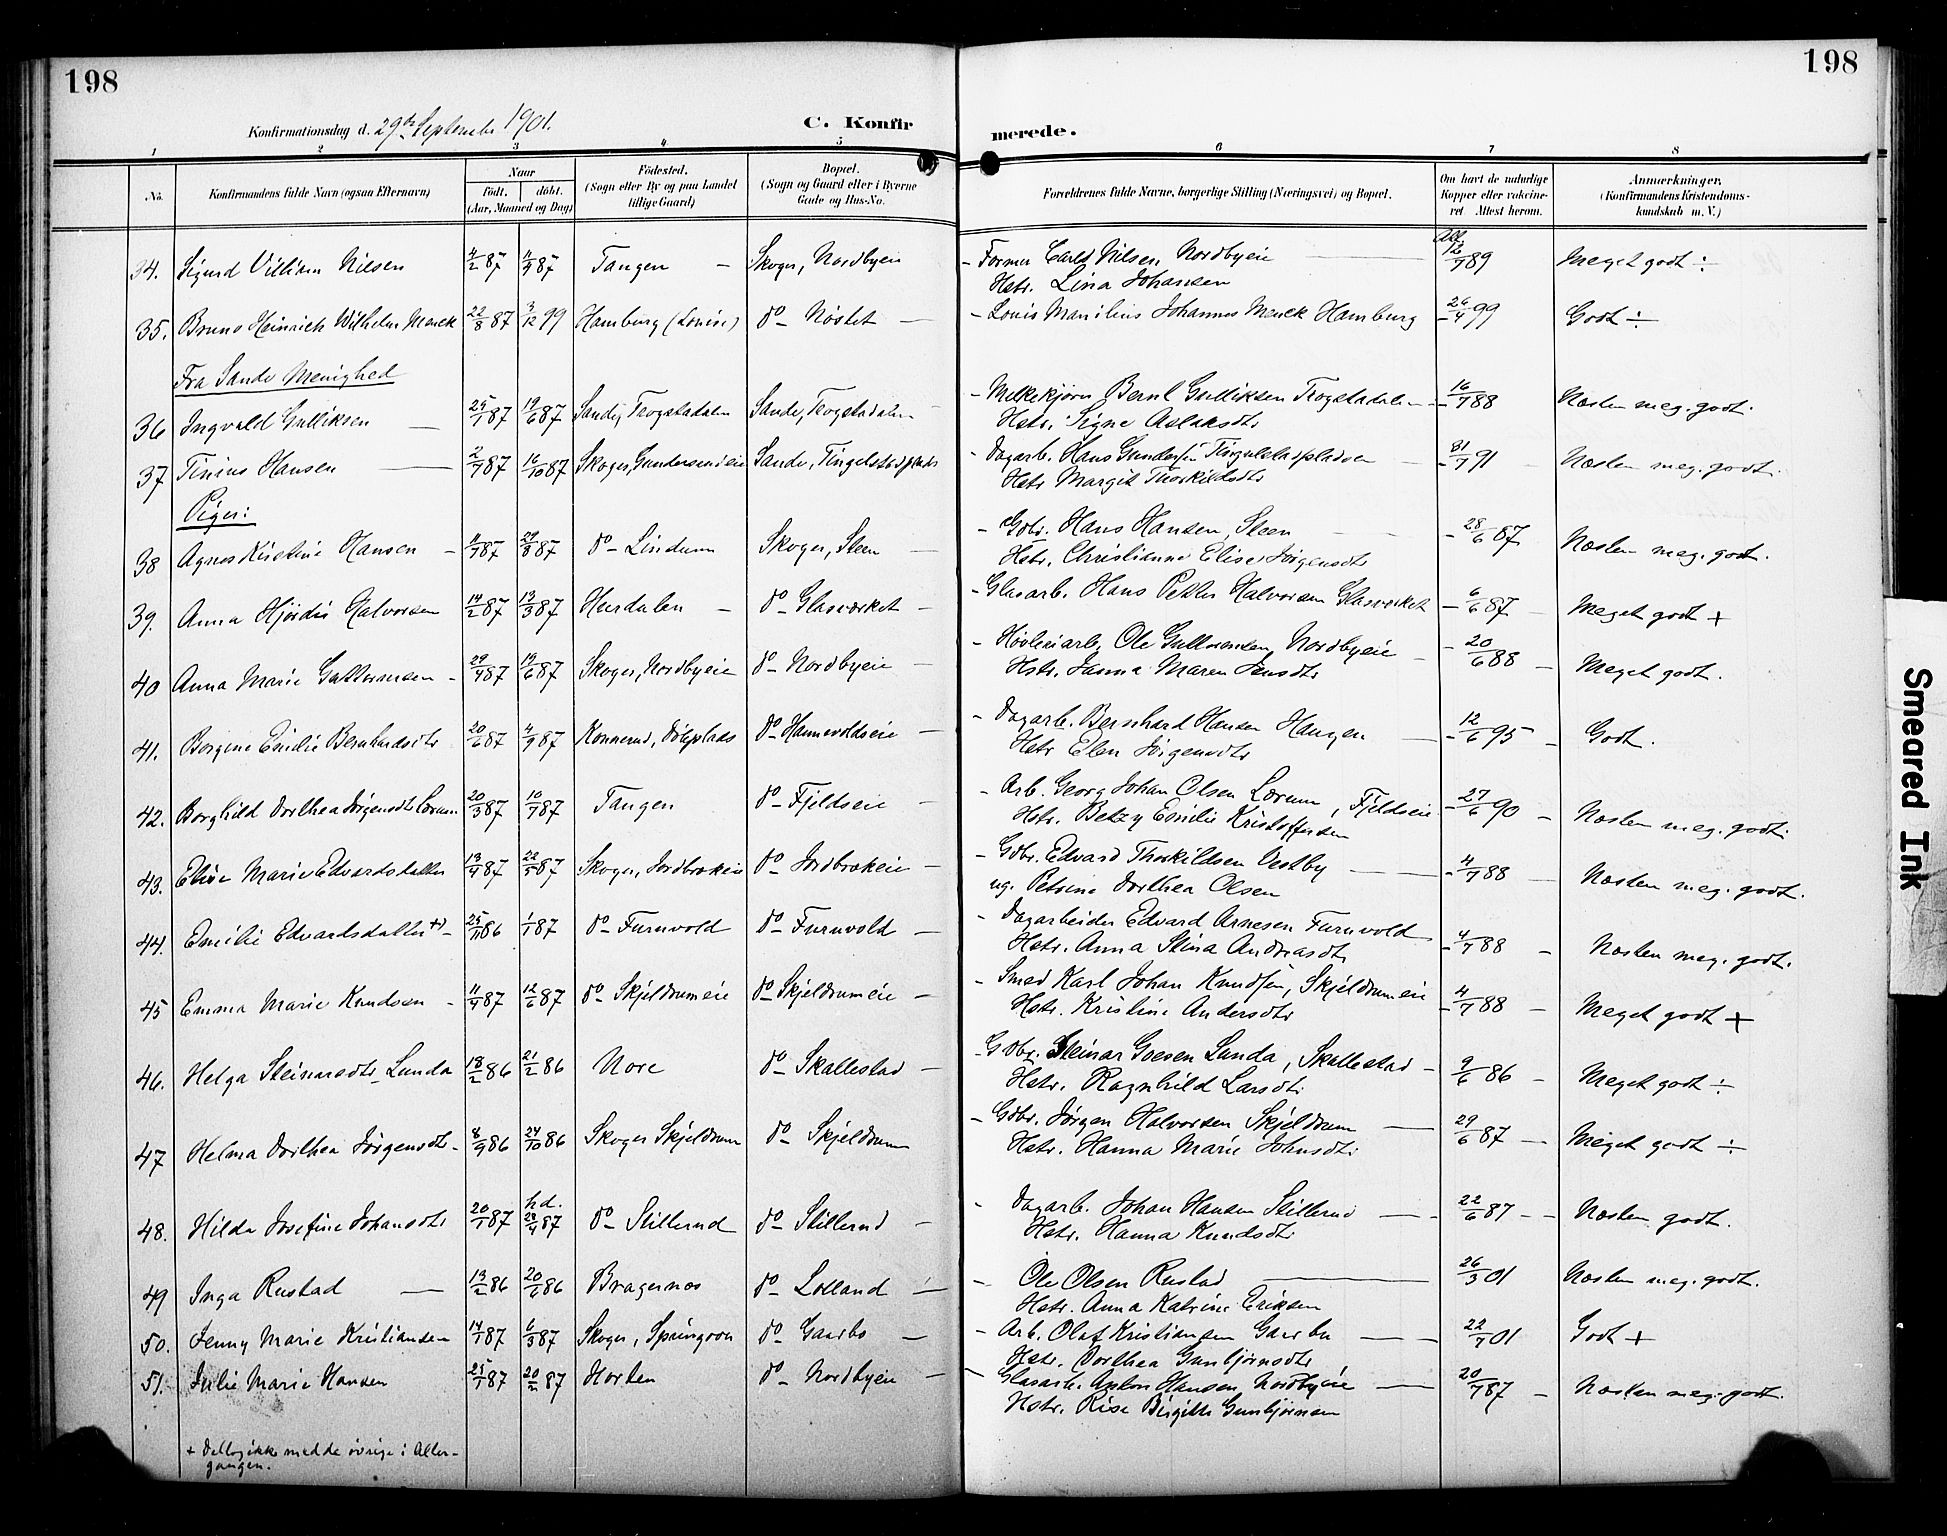 198
198
Konfirmationsdag d. 29de September 1901.
C. Konfir
merede.
1 2 3 4 5 6 7 8
No. Konfirmandens fulde Navn (ogsaa Efternavn) Naar født, døbt. (Aar, Maaned og Dag) Fødested. (Sogn eller By og paa Landet tillige Gaard) Bopæl. (Sogn og Gaard eller i Byerne Gade og Hus-No. Forældrenes fulde Navne, borgerlige Stilling (Næringsvei) og Bopæl. Om havt de naturlige Kopper eller vakcineret Attest herom. Anmærkninger. (Konfirmandens Kristendomskundskab m. V.)
34. Sigurd Villiam Nilsen 4/2 87 11/4 87 Tangen – Skoger, Nordbyeie – Former Carl Nilsen, Nordbyeie Att. 16/7 89 Meget godt ÷
Hstr. Lina Johansen
35. Bruno Heinrich Wilhelm Menck 22/8 87 3/12 99 Hamburg (Louise) do – Nøstet – – Louis Johannes Menck Hamburg – 26/4 99 Godt ÷
Fra Sande Menighed
36 Ingvald Gulliksen – 25/1 87 19/6 87 Sande, Trogstadalen Sande, Trogstadalen – Melkekjører Bernt Gulliksen Trogstadalen – 16/7 88 Næsten meg. godt.
Hstr. Signe Aslaksdtr
37 Tinius Hansen – 2/7 87 16/10 87 Skoger, Gundeseneie Sande, Tingelstadplads – Dagarb. Hans Gundersen Tingelstadpladsen – 31/7 91 Næsten meg. godt.
Hstr Margit Thorkildsdtr
Piger:
38 Agnes Kristine Hansen – 11/1 87 27/3 87 do – Lindum Skoger, Steen – – Gdbr. Hans Hansen, Steen – 28/6 87 Næsten meg. godt.
Hstr. Christianne Elise Jørgensdtr
39. Anna Hjørdis Halvorsen 14/2 87 13/3 87 Hurdalen – do – Glasværket – – Glasarb. Hans Petter Halvorsen Glasværket – 6/6 87 – Meget godt +
40 Anna Marie Guttormsen – 29/4 87 19/6 87 Skoger, Nordbyeie do – Nordbyeie – – Høvleriarb. Ole Guttormsen, Nordbyeie – 20/6 88 – Meget godt.
Hstr. Janna Maren Jensdtr
41. Borgine Emilie Bernhardsdtr 20/6 87 4/9 87 Konnerud, Dølyplads do – Hannevoldseie – – Dagarb. Bernhard Hansen Haugen – 12/6 95 – Godt.
Hstr Elen Jørgensdtr
42. Borghild Dorthea Jørgensdtr Lorum 20/3 87 10/7 87 Tangen do – Fjeldseie – – Arb. Georg Johan Olsen Lorum, Fjeldseie – 27/6 90 – Næsten meg. godt.
Hstr. Betzy Emilie Kristoffersen
43. Elise Marie Edvardsdatter 13/4 87 22/5 87 Skoger, Jordbrækeie do – Jordbrækeie – – Gdbr. Edvard Thorkildsen Vestby – 4/7 88 – Næsten meg. godt.
ug. Petrine Dorthea Olsen
44. Emilie Edvardsdatter +) – 25/11 86 1/1 87 do – Furuvold do – Furuvold – – Dagarbeider Edvard Arnesen Furuvold – 4/7 88 – Næsten meg. godt.
Hstr. Anna Stina Andreasdtr
45 Emma Marie Knudsen – 11/4 87 12/6 87 do – Skjeldrumeie do – Skjeldrumeie – – Smed Karl Johan Knudsen, Skjeldrumeie – 4/7 88 – Meget godt +
Hstr. Kristine Andersdtr
46. Helga Steinarsdtr Lunda 18/2 86 21/2 86 Nore do – Skallestad – – Gdbr. Steinar Goesen Lunda, Skallestad – 9/6 86 – Meget godt ÷
Hstr. Ragnhild Larsdtr
47 Helma Dorthea Jørgensdtr – 8/9 86 24/10 86 Skoger Skjeldrum do – Skjeldrum – Gdbr. Jørgen Halvorsen Skjeldrum – 29/6 87 – Meget godt ÷
Hstr. Hanna Marie Johnsdtr
48. Hilda Josefine Johansdtr 20/1 87 hd. 28/4 87 do – Stillerud do – Stillerud – – Dagarb. Johan Hansen Stillerud – 22/6 87 – Næsten godt.
Hstr. Hanna Knudsdtr
49 Inga Rustad – 13/2 86 20/6 86 Bragernes do – Lolland – – Ole Olsen Rustad – 26/3 01 Næsten meg. godt.
Hstr. Anna Katrine Eriksen
50. Jenny Marie Kristiansen 14/1 87 6/3 87 Skoger, do – Gaarbo – – Arb. Olaf Kristiansen Gaarbo – 22/7 01 Godt +
Hstr. Dorthea Gunbjørnsdtr
51. Julie Marie Hansen 25/1 87 20/2 87 Horten do – Nordbyeie – – Glasarb. Anton Hansen, Nordbyeie – 20/7 87 – Næsten meg. godt.
Hstr. Rise Birgitte Gunbjørnsen
+ Deltog ikke med de øvrige i Altergangen.
Smeared Ink